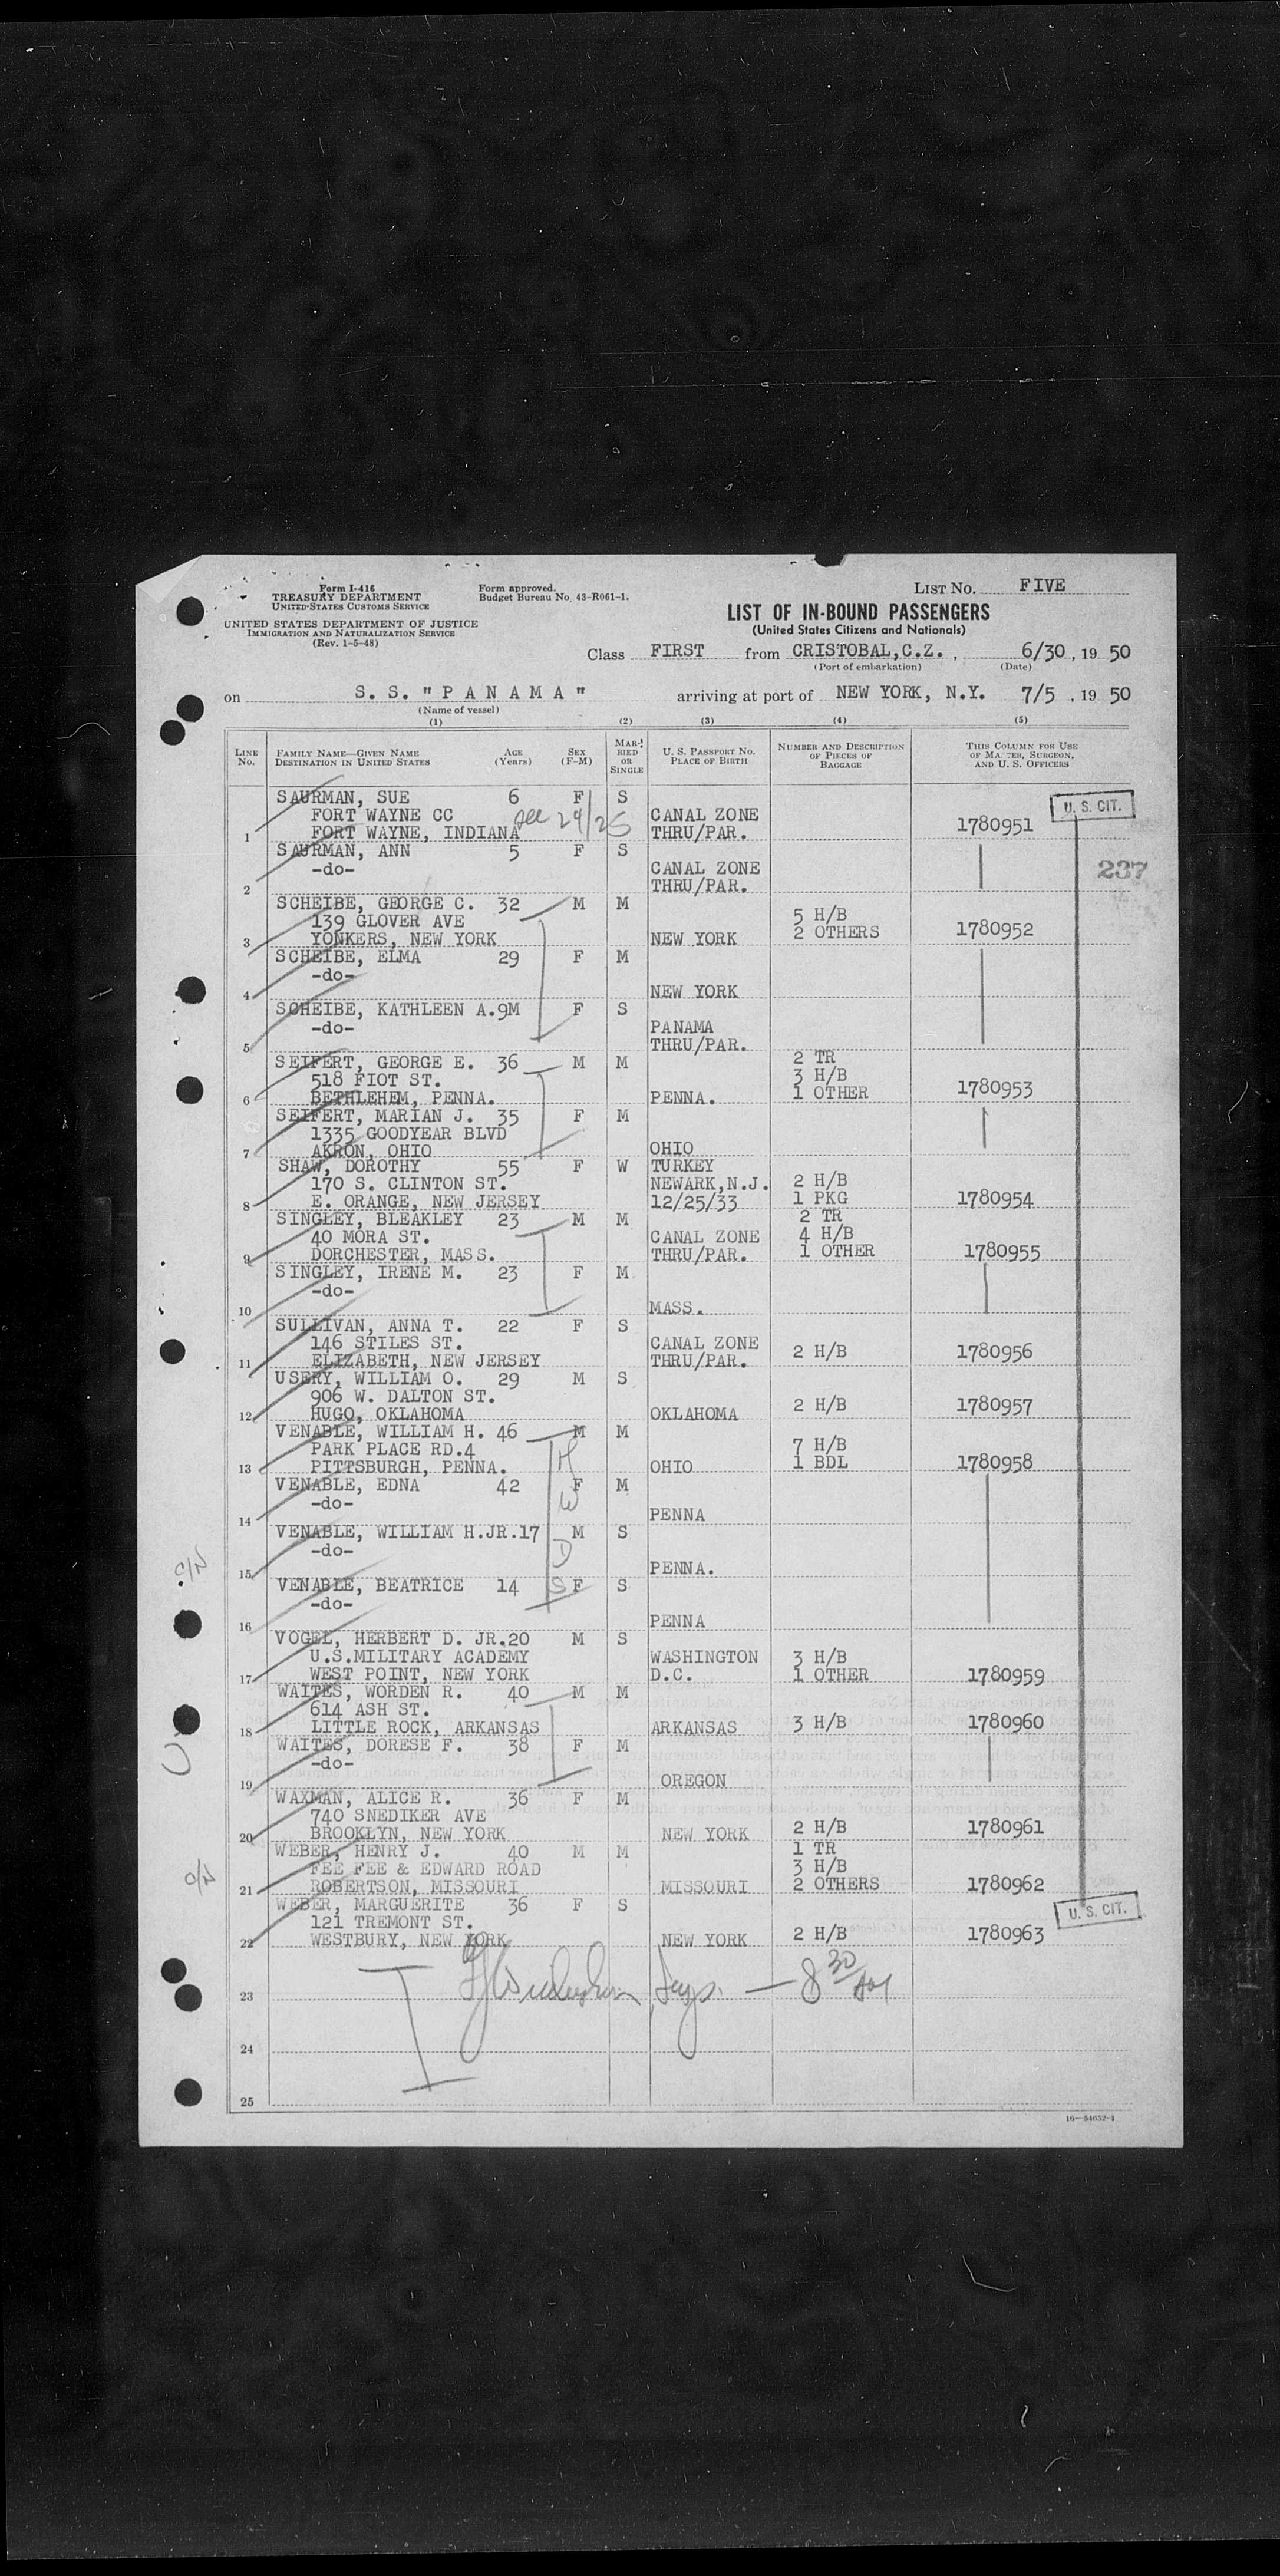 Form I-416
TREASURY DEPARTMENT
UNITED STATES CUSTOMS SERVICE
UNITED STATES DEPARTMENT OF JUSTICE
IMMIGRATION AND NATURALIZATION SERVICE
(Rev. 1-5-48)
Form approved.
Budget Bureau No. 43-R061-1.
LIST No. FIVE
LIST OF IN-BOUND PASSENGERS
(United States Citizens and Nationals)
Class FIRST from CRISTOBAL,C.Z. , 6/30 , 19 50
(Port of embarkation) (Date)
on S. S. "P A N A M A" arriving at port of NEW YORK, N.Y. 7/5 , 19 50
(Name of vessel)
(1) (2) (3) (4) (5)
LINE No. FAMILY NAME—GIVEN NAME DESTINATION IN UNITED STATES AGE (Years) SEX (F-M) MARRIED OR SINGLE U. S. PASSPORT NO. PLACE OF BIRTH NUMBER AND DESCRIPTION OF PIECES OF BAGGAGE THIS COLUMN FOR USE OF MASTER, SURGEON, AND U. S. OFFICERS
SAURMAN, SUE 6 F S U. S. CIT.
FORT WAYNE CC see 24/25 CANAL ZONE
1 FORT WAYNE, INDIANA THRU/PAR. 1780951
SAURMAN, ANN 5 F S
-do- CANAL ZONE 237
2 THRU/PAR.
SCHEIBE, GEORGE C. 32 M M
139 GLOVER AVE 5 H/B
3 YONKERS, NEW YORK NEW YORK 2 OTHERS 1780952
SCHEIBE, ELMA 29 F M
-do-
4 NEW YORK
SCHEIBE, KATHLEEN A.9M F S
-do- PANAMA
5 THRU/PAR.
SEIFERT, GEORGE E. 36 M M 2 TR
518 FIOT ST. 3 H/B
6 BETHLEHEM, PENNA. PENNA. 1 OTHER 1780953
SEIFERT, MARIAN J. 35 F M
1335 GOODYEAR BLVD
7 AKRON, OHIO OHIO
SHAW, DOROTHY 55 F W TURKEY
170 S. CLINTON ST. NEWARK,N.J. 2 H/B
8 E. ORANGE, NEW JERSEY 12/25/33 1 PKG 1780954
SINGLEY, BLEAKLEY 23 M M 2 TR
40 MORA ST. CANAL ZONE 4 H/B
9 DORCHESTER, MASS. THRU/PAR. 1 OTHER 1780955
SINGLEY, IRENE M. 23 F M
-do-
10 MASS.
SULLIVAN, ANNA T. 22 F S
146 STILES ST. CANAL ZONE
11 ELIZABETH, NEW JERSEY THRU/PAR. 2 H/B 1780956
USERY, WILLIAM O. 29 M S
906 W. DALTON ST.
12 HUGO, OKLAHOMA OKLAHOMA 2 H/B 1780957
VENABLE, WILLIAM H. 46 M M
PARK PLACE RD.4 H 7 H/B
13 PITTSBURGH, PENNA. OHIO 1 BDL 1780958
VENABLE, EDNA 42 F M
-do- W
14 PENNA
VENABLE, WILLIAM H.JR.17 M S
-do- D
15 PENNA.
VENABLE, BEATRICE 14 S F S
-do-
16 PENNA
VOGEL, HERBERT D. JR.20 M S
U.S.MILITARY ACADEMY WASHINGTON 3 H/B
17 WEST POINT, NEW YORK D.C. 1 OTHER 1780959
WAITES, WORDEN R. 40 M M
614 ASH ST.
18 LITTLE ROCK, ARKANSAS ARKANSAS 3 H/B 1780960
WAITES, DORESE F. 38 F M
-do-
19 OREGON
WAXMAN, ALICE R. 36 F M
740 SNEDIKER AVE
20 BROOKLYN, NEW YORK NEW YORK 2 H/B 1780961
WEBER, HENRY J. 40 M M 1 TR
FEE FEE & EDWARD ROAD 3 H/B
21 ROBERTSON, MISSOURI MISSOURI 2 OTHERS 1780962
WEBER, MARGUERITE 36 F S U. S. CIT.
121 TREMONT ST.
22 WESTBURY, NEW YORK NEW YORK 2 H/B 1780963
23 Insp. — 8 30
24
25
16—54652-1